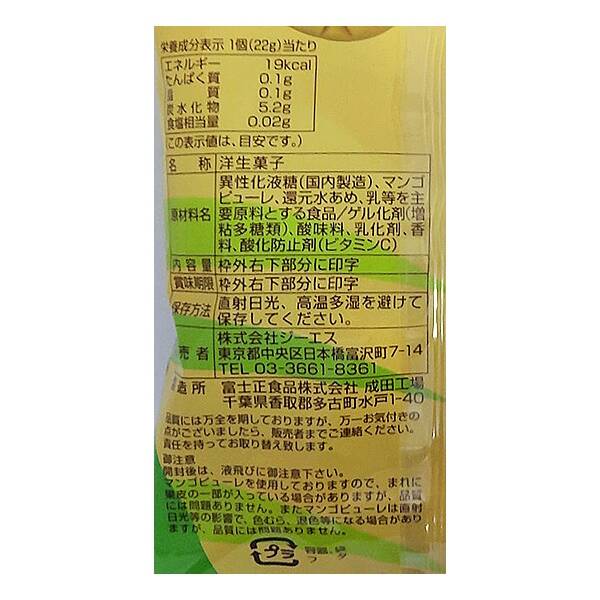 栄養成分表示 1個(22g)当たり
エネルギー 19kcal
たんぱく質 0.1g
質 0.1g
炭水化物 5.2g
食塩相当量 0.02g
(この表示値は、目安です。)
名 称 洋生菓子
原材料名 異性化液糖(国内製造)、マンゴ
ピューレ、還元水あめ、乳等を主
要原料とする食品/ゲル化剤(増
粘多糖類)、酸味料、乳化剤、香
料、酸化防止剤(ビタミンC)
内容量 枠外右下部分に印字
賞味期限 枠外右下部分に印字
保存方法 直射日光、高温多湿を避けて
保存してください。
売者 株式会社ジーエス
東京都中央区日本橋富沢町7-14
TEL 03-3661-8361
造所 富士正食品株式会社 成田工場
千葉県香取郡多古町水戸1-40
品質には万全を期しておりますが、万一お気付きの
点がございましたら、販売者までご連絡ください。
責任を持ってお取り替え致します。
御注意
開封後は、液飛びに御注意下さい。
マンゴピューレを使用しておりますので、まれに
果皮の一部が入っている場合がありますが、品質
には問題ありません。またマンゴピューレは直射
日光等の影響で、色むら、退色等になる場合があり
ますが、品質には問題ありません。
プラ